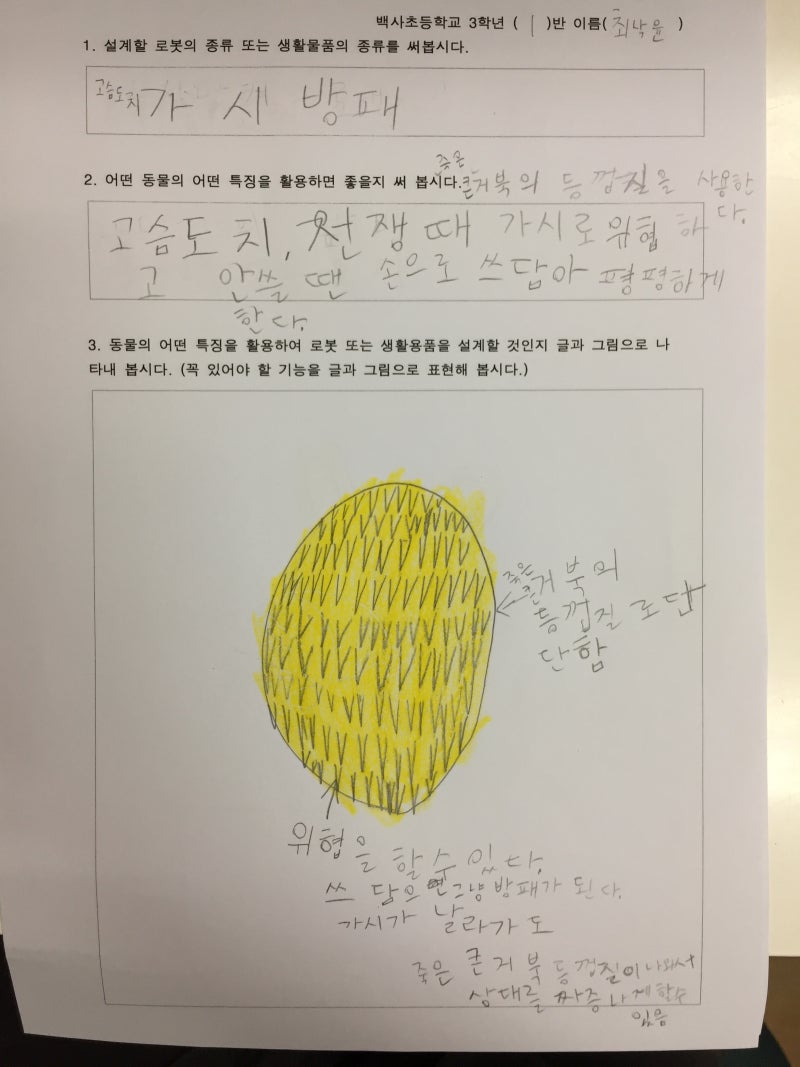 백사초등학교 3학년 ( 1 )반 이름( 최낙윤 )
1. 설계할 로봇의 종류 또는 생활물품의 종류를 써봅시다.
고슴도치가시 방패
2. 어떤 동물의 어떤 특징을 활용하면 좋을지 써 봅시다.
죽은
큰거북의 등껍질을 사용한
다.
고슴도치, 전쟁때 가시로 위협하
고 안쓸땐 손으로 쓰답아 평평하게
한다.
3. 동물의 어떤 특징을 활용하여 로봇 또는 생활용품을 설계할 것인지 글과 그림으로 나
타내 봅시다. (꼭 있어야 할 기능을 글과 그림으로 표현해 봅시다.)
죽은
큰거북의
등껍질로 단
단함
위협을 할수 있다.
쓰담으면 그냥 방패가 된다.
가시가 날라가도
죽은 큰거북 등껍질이 나와서
상대를 짜증나게 할수
있음